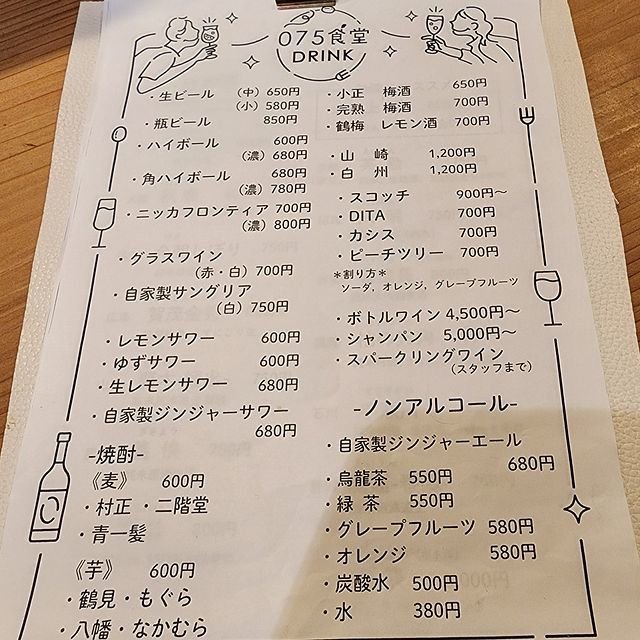 075食堂
DRINK
・生ビール （中）650円
（小）580円
・瓶ビール 850円
・ハイボール 600円
（濃）680円
・角ハイボール 680円
（濃）780円
・ニッカフロンティア 700円
（濃）800円
・グラスワイン
（赤・白）700円
・自家製サングリア
（白）750円
・レモンサワー 600円
・ゆずサワー 600円
・生レモンサワー 680円
・自家製ジンジャーサワー
680円
-焼酎-
《麦》 600円
・村正・二階堂
・青一髪
《芋》 600円
・鶴見・もぐら
・八幡・なかむら
・小正 梅酒 650円
・完熟 梅酒 700円
・鶴梅 レモン酒 700円
・山 崎 1,200円
・白 州 1,200円
・スコッチ 900円～
・DITA 700円
・カシス 700円
・ピーチツリー 700円
＊割り方＊
ソーダ, オレンジ, グレープフルーツ
・ボトルワイン 4,500円～
・シャンパン 5,000円～
・スパークリングワイン
（スタッフまで）
-ノンアルコール-
・自家製ジンジャーエール
680円
・烏龍茶 550円
・緑 茶 550円
・グレープフルーツ 580円
・オレンジ 580円
・炭酸水 500円
・水 380円